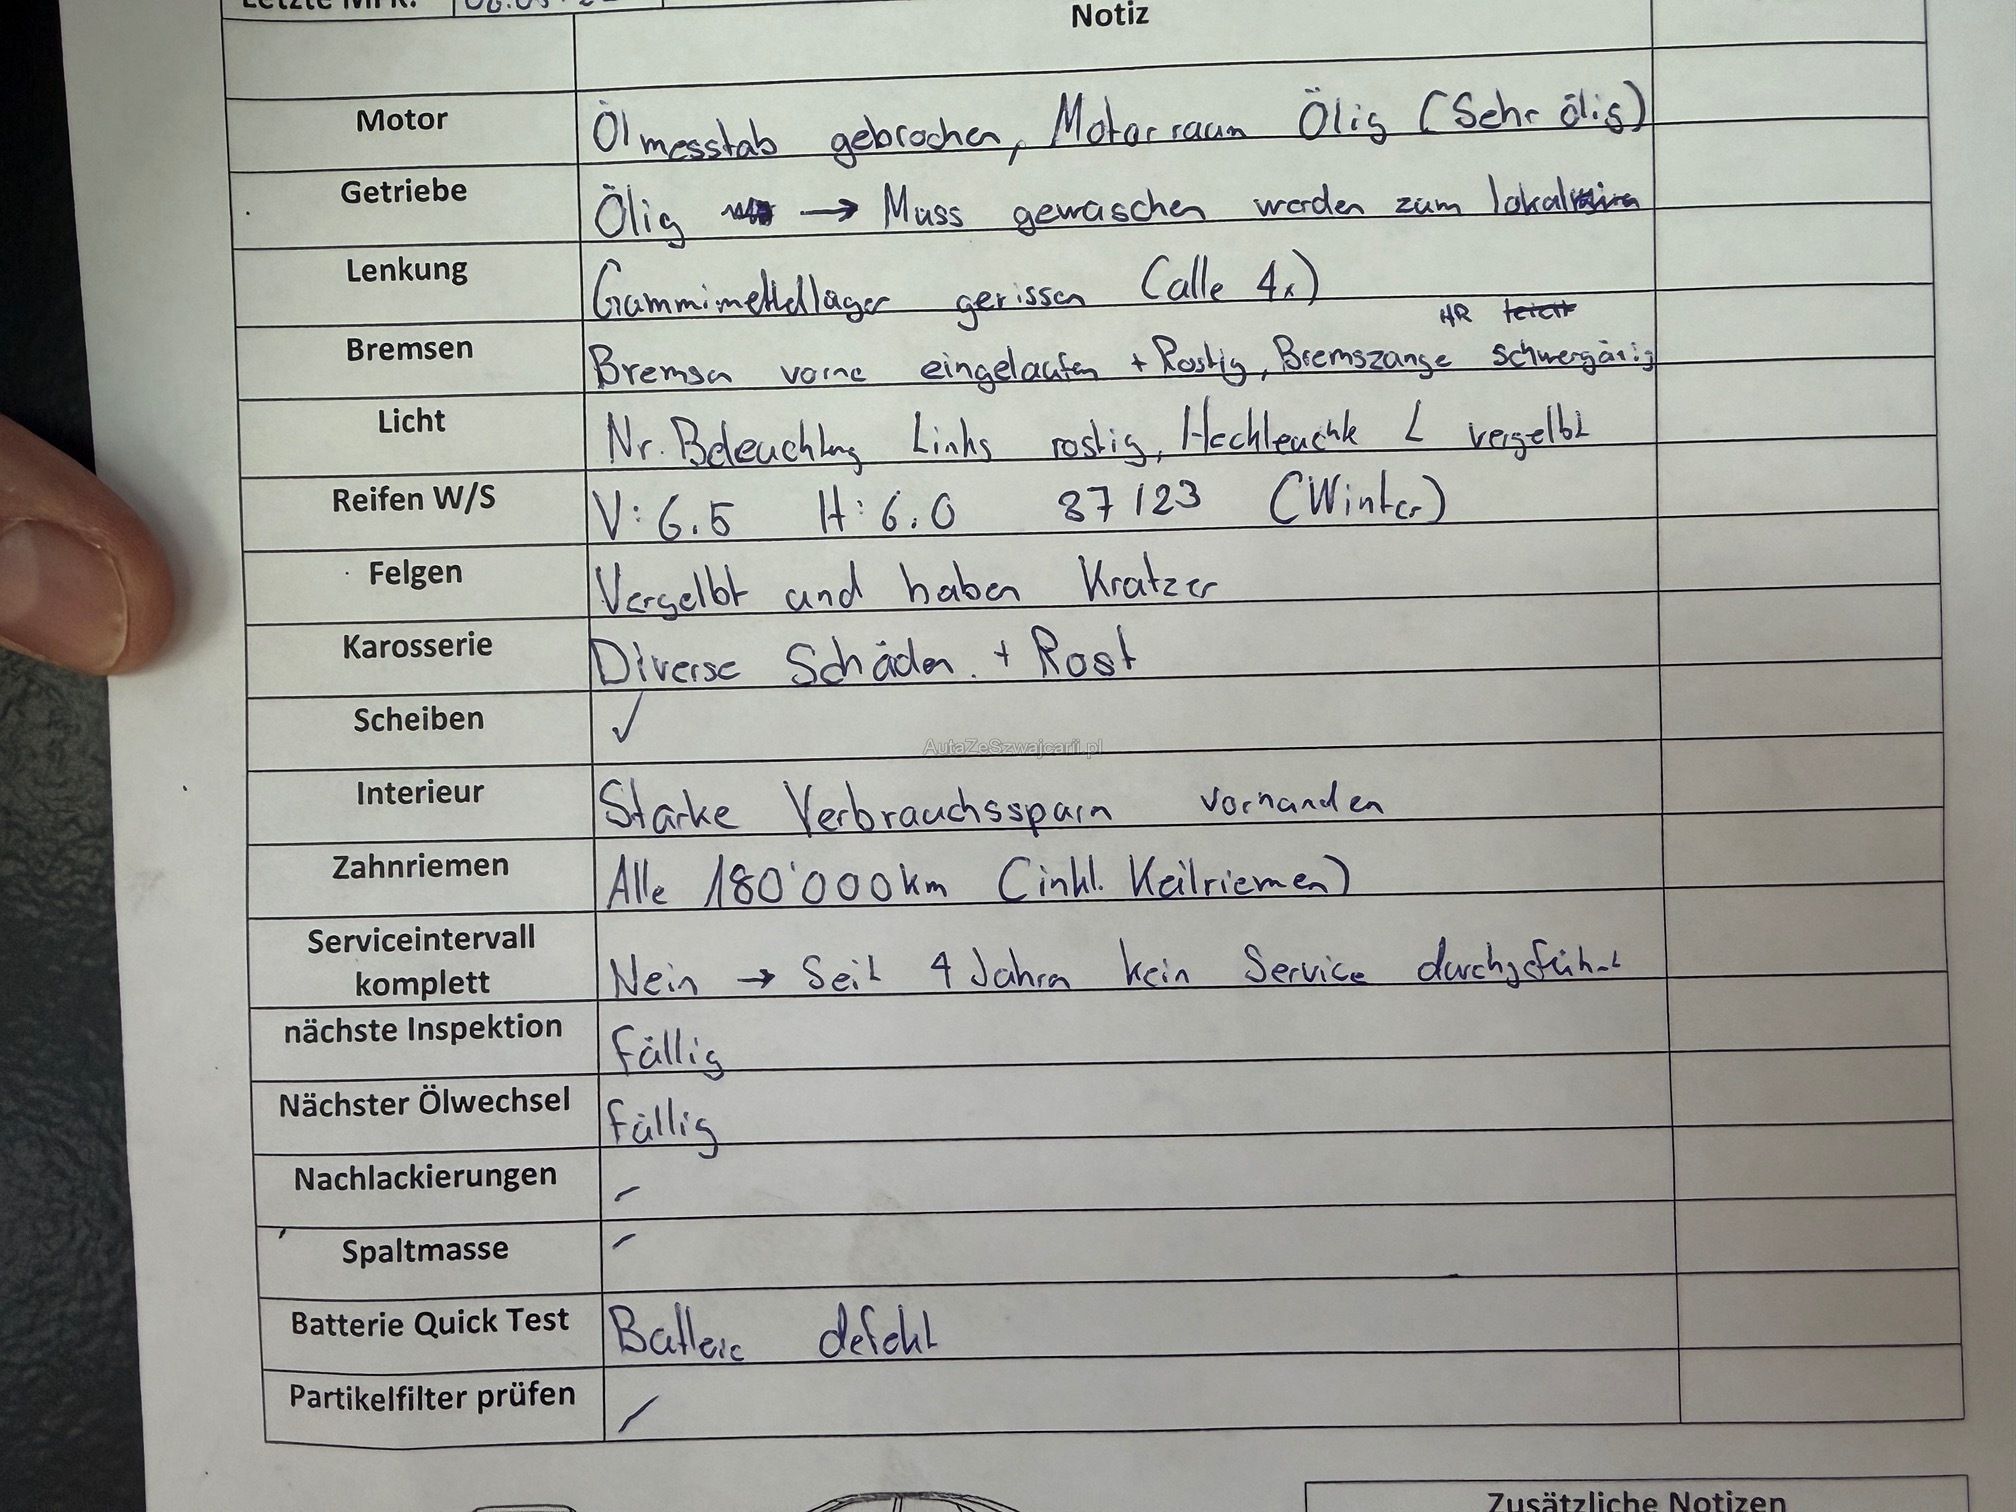 Letzte MFK:
Notiz
Motor Ölmesstab gebrochen, Motorraum Ölig (Sehr ölig)
Getriebe Ölig → Muss gewaschen werden zum lokal
Lenkung Gummimetallager gerissen (alle 4x)
HR leicht
Bremsen Bremsen vorne eingelaufen + Rostig, Bremszange schwergängig
Licht Nr. Beleuchtung Links rostig, Heckleuchte L vergelbt
Reifen W/S V: 6.5 H: 6.0 37/23 (Winter)
Felgen Vergelbt und haben Kratzer
Karosserie Diverse Schäden + Rost
Scheiben ✓
AutaZeSzwajcarii.pl
Interieur Starke Verbrauchsspurn vorhanden
Zahnriemen Alle 180'000km (inkl. Keilriemen)
Serviceintervall
komplett Nein → Seit 4 Jahren kein Service durchgeführt
nächste Inspektion Fällig
Nächster Ölwechsel Fällig
Nachlackierungen -
Spaltmasse -
Batterie Quick Test Batterie defekt
Partikelfilter prüfen /
Zusätzliche Notizen